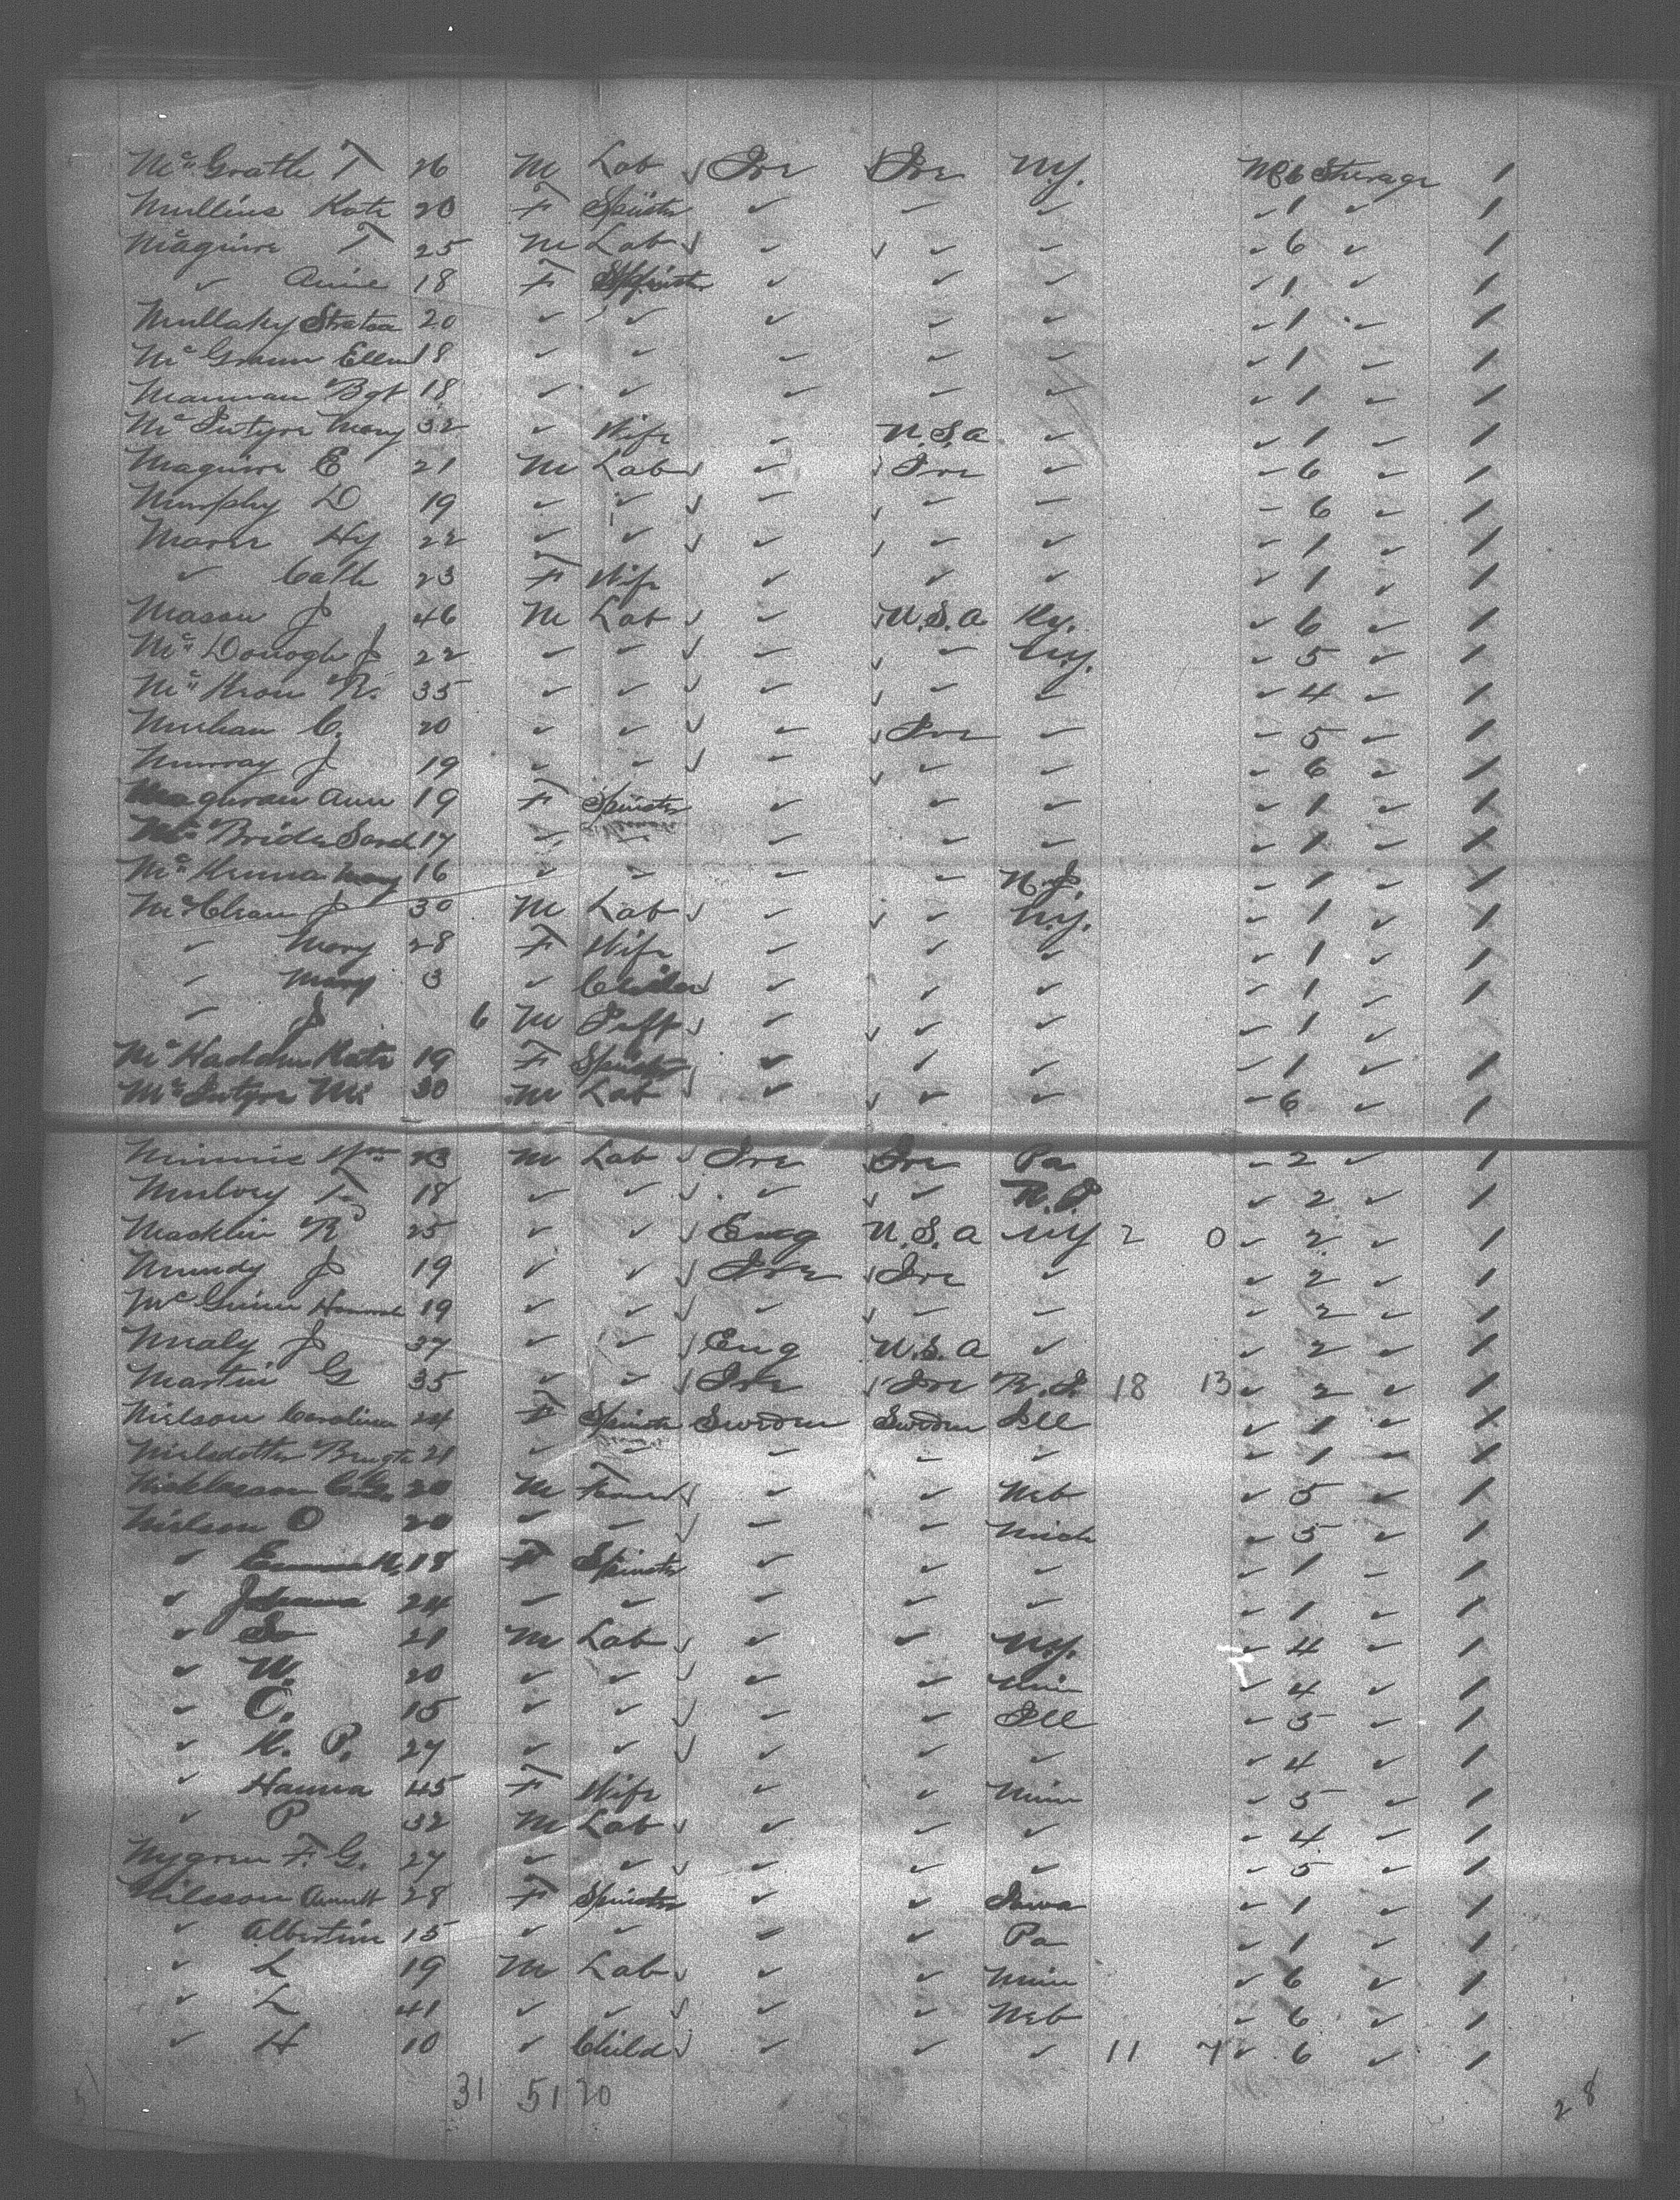 McGrath T 26 M Lab ✓ Ire ✓ Ire N.Y. No 6 Steerage 1
Mullins Kate 20 F Spinstr ✓ ✓ ✓ ✓ 1 ✓ 1
Maguire T 25 M Lab ✓ ✓ ✓ ✓ ✓ ✓ 6 ✓ 1
✓ Annie 18 F Spinstr ✓ ✓ ✓ ✓ 1 ✓ 1
Mullaky 20 ✓ ✓ ✓ ✓ ✓ ✓ 1 ✓ 1
Mc Ellen 18 ✓ ✓ ✓ ✓ ✓ ✓ 1 ✓ 1
Mannan Bgt 18 ✓ ✓ ✓ ✓ ✓ ✓ 1 ✓ 1
McIntyre Mary 32 ✓ Wife ✓ U.S.A ✓ ✓ 1 ✓ 1
Maguire E 21 M Lab ✓ ✓ ✓ Ire ✓ ✓ 6 ✓ 1
Murphy D 19 ✓ ✓ ✓ ✓ ✓ ✓ ✓ ✓ 6 ✓ 1
Hy 22 ✓ ✓ ✓ ✓ ✓ ✓ ✓ ✓ 1 ✓ 1
✓ Cath 23 F Wife ✓ ✓ ✓ ✓ 1 ✓ 1
Mason J 46 M Lab ✓ ✓ ✓ U.S.A Ky. ✓ 6 ✓ 1
McDonogh J 22 ✓ ✓ ✓ ✓ ✓ ✓ N.Y. ✓ 5 ✓ 1
McKeon R. 35 ✓ ✓ ✓ ✓ ✓ ✓ ✓ ✓ 4 ✓ 1
C. 20 ✓ ✓ ✓ ✓ ✓ Ire ✓ ✓ 5 ✓ 1
Murray J 19 ✓ ✓ ✓ ✓ ✓ ✓ ✓ ✓ 6 ✓ 1
Maguran Ann 19 F Spinstr ✓ ✓ ✓ ✓ 1 ✓ 1
McBride Sarah 17 ✓ ✓ ✓ ✓ ✓ ✓ 1 ✓ 1
McKenna Mary 16 ✓ ✓ ✓ ✓ N.J. ✓ 1 ✓ 1
McClean J 30 M Lab ✓ ✓ ✓ ✓ N.Y. ✓ 1 ✓ 1
✓ Mary 28 F Wife ✓ ✓ ✓ ✓ 1 ✓ 1
✓ Mary 3 ✓ Child ✓ ✓ ✓ ✓ 1 ✓ 1
✓ J 6 M Inft ✓ ✓ ✓ ✓ ✓ ✓ 1 ✓ 1
McHadden Kate 19 F Spinstr ✓ ✓ ✓ ✓ 1 ✓ 1
McIntyre M. 30 M Lab ✓ ✓ ✓ ✓ ✓ ✓ 6 ✓ 1
Minnis Wm 23 M Lab ✓ Ire Ire Pa ✓ 2 ✓ 1
Mulvey T 18 ✓ ✓ ✓ ✓ ✓ ✓ ✓ 2 ✓ 1
Macklin R 25 ✓ ✓ ✓ Eng U.S.A NY 2 0 ✓ 2 ✓ 1
Mundy J 19 ✓ ✓ ✓ Ire ✓ Ire ✓ ✓ 2 ✓ 1
McGuinn Hannah 19 ✓ ✓ ✓ ✓ ✓ ✓ ✓ ✓ 2 ✓ 1
J 37 ✓ ✓ ✓ Eng U.S.A ✓ ✓ 2 ✓ 1
Martin G 35 ✓ ✓ ✓ Ire ✓ Ire R.I. 18 13 ✓ 2 ✓ 1
Nielson Carolina 24 F Spinstr Sweden Sweden Ill ✓ 1 ✓ 1
Nielsdotter 21 ✓ ✓ ✓ ✓ ✓ ✓ 1 ✓ 1
Nicklasson 20 M ✓ ✓ ✓ Neb ✓ 5 ✓ 1
Nielson O 20 ✓ ✓ ✓ ✓ ✓ Mich ✓ 5 ✓ 1
✓ Emma 18 F Spinstr ✓ ✓ ✓ ✓ 1 ✓ 1
✓ Johanna 24 ✓ ✓ ✓ ✓ ✓ ✓ 1 ✓ 1
✓ 21 M Lab ✓ ✓ ✓ N.Y. ✓ 4 ✓ 1
✓ N. 20 ✓ ✓ ✓ ✓ ✓ Min ✓ 4 ✓ 1
✓ C. 15 ✓ ✓ ✓ ✓ ✓ Ill ✓ 5 ✓ 1
✓ K. P. 27 ✓ ✓ ✓ ✓ ✓ ✓ ✓ 4 ✓ 1
✓ Hanna 45 F Wife ✓ ✓ Minn ✓ 5 ✓ 1
✓ P 32 M Lab ✓ ✓ ✓ ✓ ✓ 4 ✓ 1
Nygren F. G. 27 ✓ ✓ ✓ ✓ ✓ ✓ ✓ 5 ✓ 1
Nilsson 28 F Spinstr ✓ ✓ Iowa ✓ 1 ✓ 1
✓ Albertina 15 ✓ ✓ ✓ ✓ Pa ✓ 1 ✓ 1
✓ L 19 M Lab ✓ ✓ ✓ Minn ✓ 6 ✓ 1
✓ L 41 ✓ ✓ ✓ ✓ ✓ Neb ✓ 6 ✓ 1
✓ H 10 ✓ Child ✓ ✓ ✓ ✓ 11 7 ✓ 6 ✓ 1
31 51 20
28